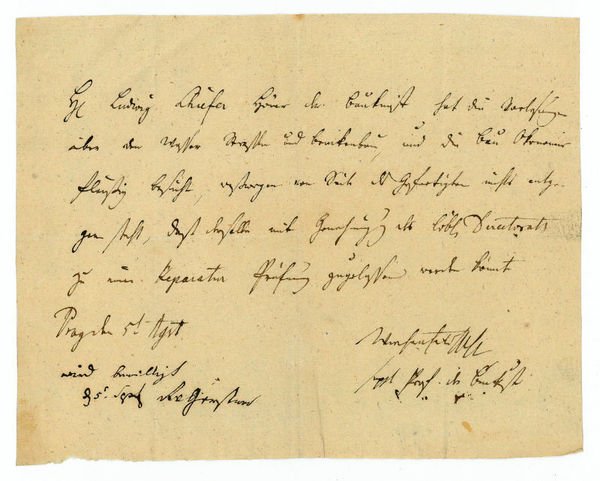 H. Ludwig Kiefer Hörer der Baukunst hat die Vorlesungen
über den Wasser Strassen und Brückenbau, und die Bau Ökonomie
fleißig besucht, weßwegen von Seite des Gefertigten nichts entge-
gen steht, daß derselbe mit Genehmigung des löbl. Directorats
zu einer Separaten Prüfung zugelassen werden könnte
Prag den 5t Sept
Prof. der Baukunst
wird bewilligt
d 5t Sept Gerstner